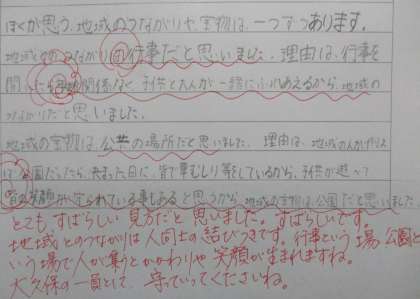 ぼくが思う、地域のつながりや、宝物は、一つずつあります。
地域とのつながりは、行事だと思いました。理由は、行事を
開いたら、関係なく、子供と大人が一緒にふれあえるから、地域の
つながりだと思いました。
地域の宝物は、公共の場所だと思いました。理由は、地域の人が
公園だったら、決まった日に、皆で草むしり等をしているから、子供が遊べて
皆の笑顔が守られている事もあると思うから、地域の宝物は、公園だと思いました。
とても、すばらしい見方だと思いました。すばらしいです。
地域とのつながりは人同士の結びつきです。行事という場、公園と
いう場で人が集うとかかわりや笑顔が生まれますね。
大久保の一員として、守っていってくださいね。